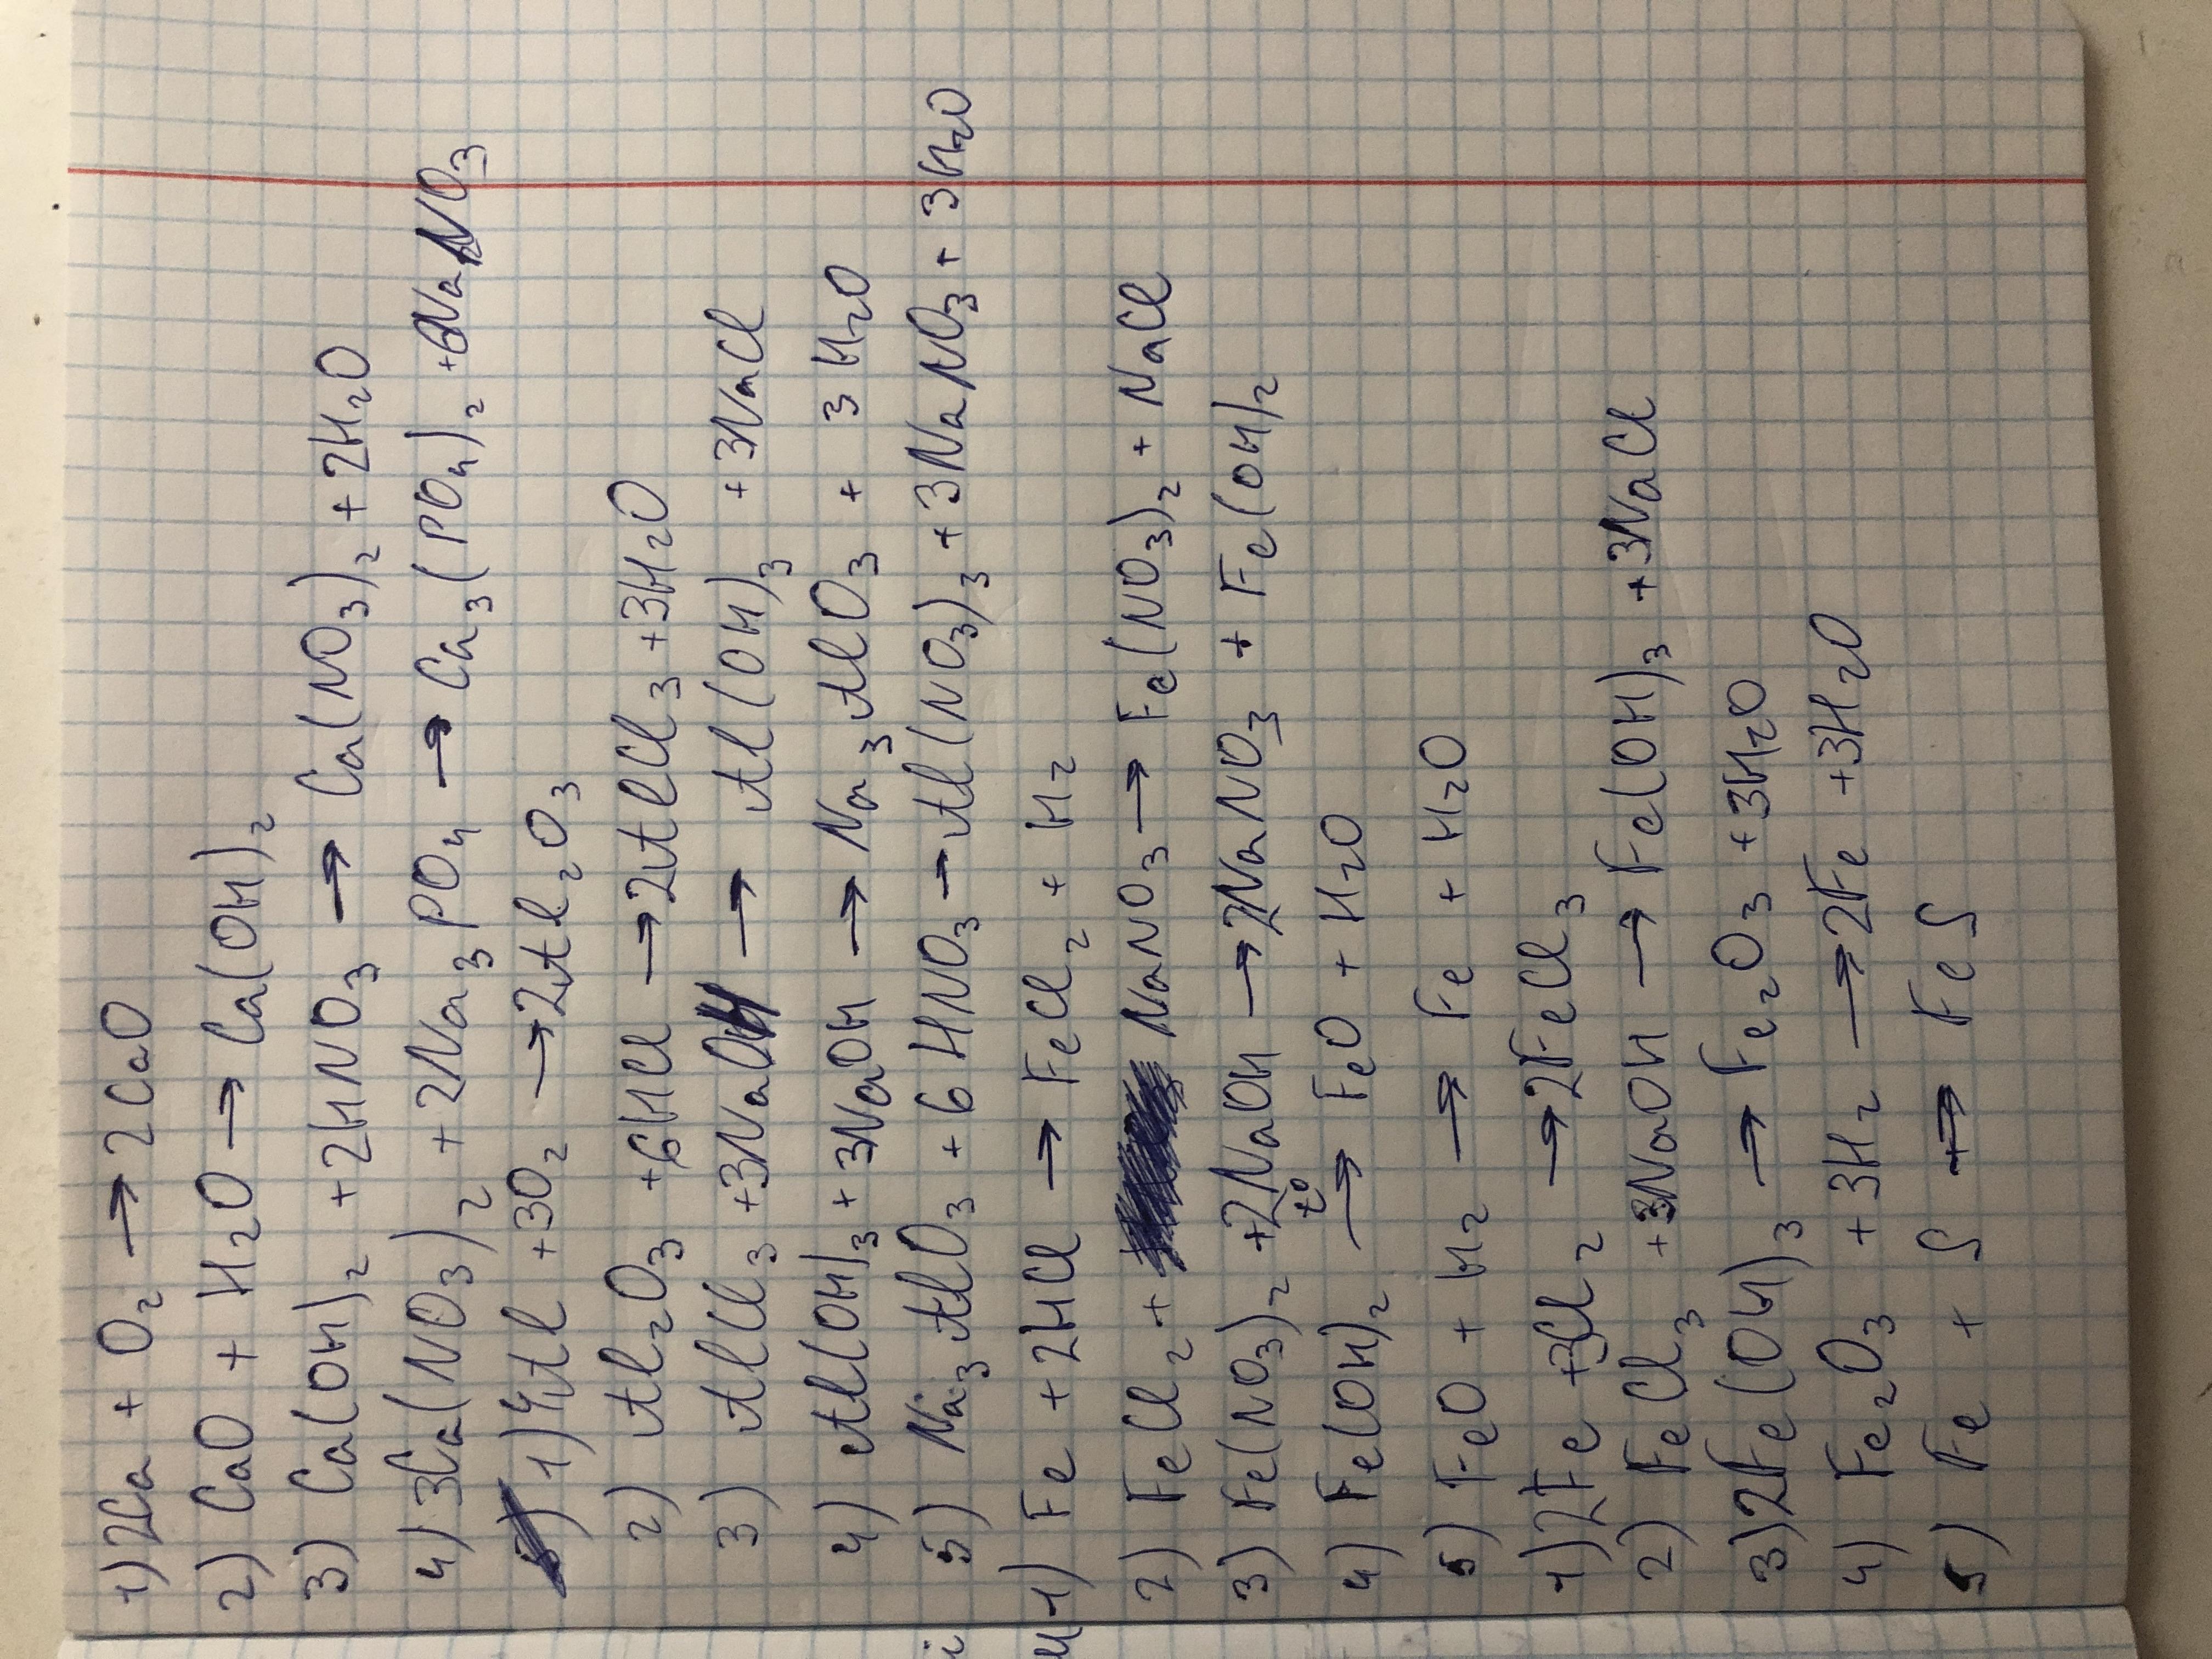 1) 2Ca + O₂ → 2CaO
2) CaO + H₂O → Ca(OH)₂
3) Ca(OH)₂ + 2HNO₃ → Ca(NO₃)₂ + 2H₂O
4) 3Ca(NO₃)₂ + 2Na₃PO₄ → Ca₃(PO₄)₂ + 6NaNO₃
1) 4Al + 3O₂ → 2Al₂O₃
2) Al₂O₃ + 6HCl → 2AlCl₃ + 3H₂O
3) AlCl₃ + 3NaOH → Al(OH)₃ + 3NaCl
4) Al(OH)₃ + 3NaOH → Na₃AlO₃ + 3H₂O
5) Na₃AlO₃ + 6HNO₃ → Al(NO₃)₃ + 3NaNO₃ + 3H₂O
1) Fe + 2HCl → FeCl₂ + H₂
2) FeCl₂ + NaNO₃ → Fe(NO₃)₂ + NaCl
3) Fe(NO₃)₂ + 2NaOH → 2NaNO₃ + Fe(OH)₂
4) Fe(OH)₂ t° → FeO + H₂O
5) FeO + H₂ → Fe + H₂O
1) 2Fe + 3Cl₂ → 2FeCl₃
2) FeCl₃ + 3NaOH → Fe(OH)₃ + 3NaCl
3) 2Fe(OH)₃ → Fe₂O₃ + 3H₂O
4) Fe₂O₃ + 3H₂ → 2Fe + 3H₂O
5) Fe + S → FeS